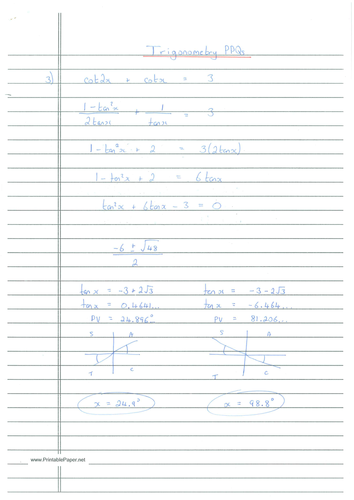 Trigonometry PPQs
3) cot2x + cotx = 3
1-tan²x / 2tanx + 1 / tanx = 3
1-tan²x + 2 = 3(2tanx)
1-tan²x + 2 = 6tanx
tan²x + 6tanx - 3 = 0
-6 ± √48 / 2
tanx = -3+2√3 tanx = -3-2√3
tanx = 0.4641... tanx = -6.464...
PV = 24.896° PV = 81.206...
S A
T C
T C
x = 24.9° x = 98.8°
www.PrintablePaper.net